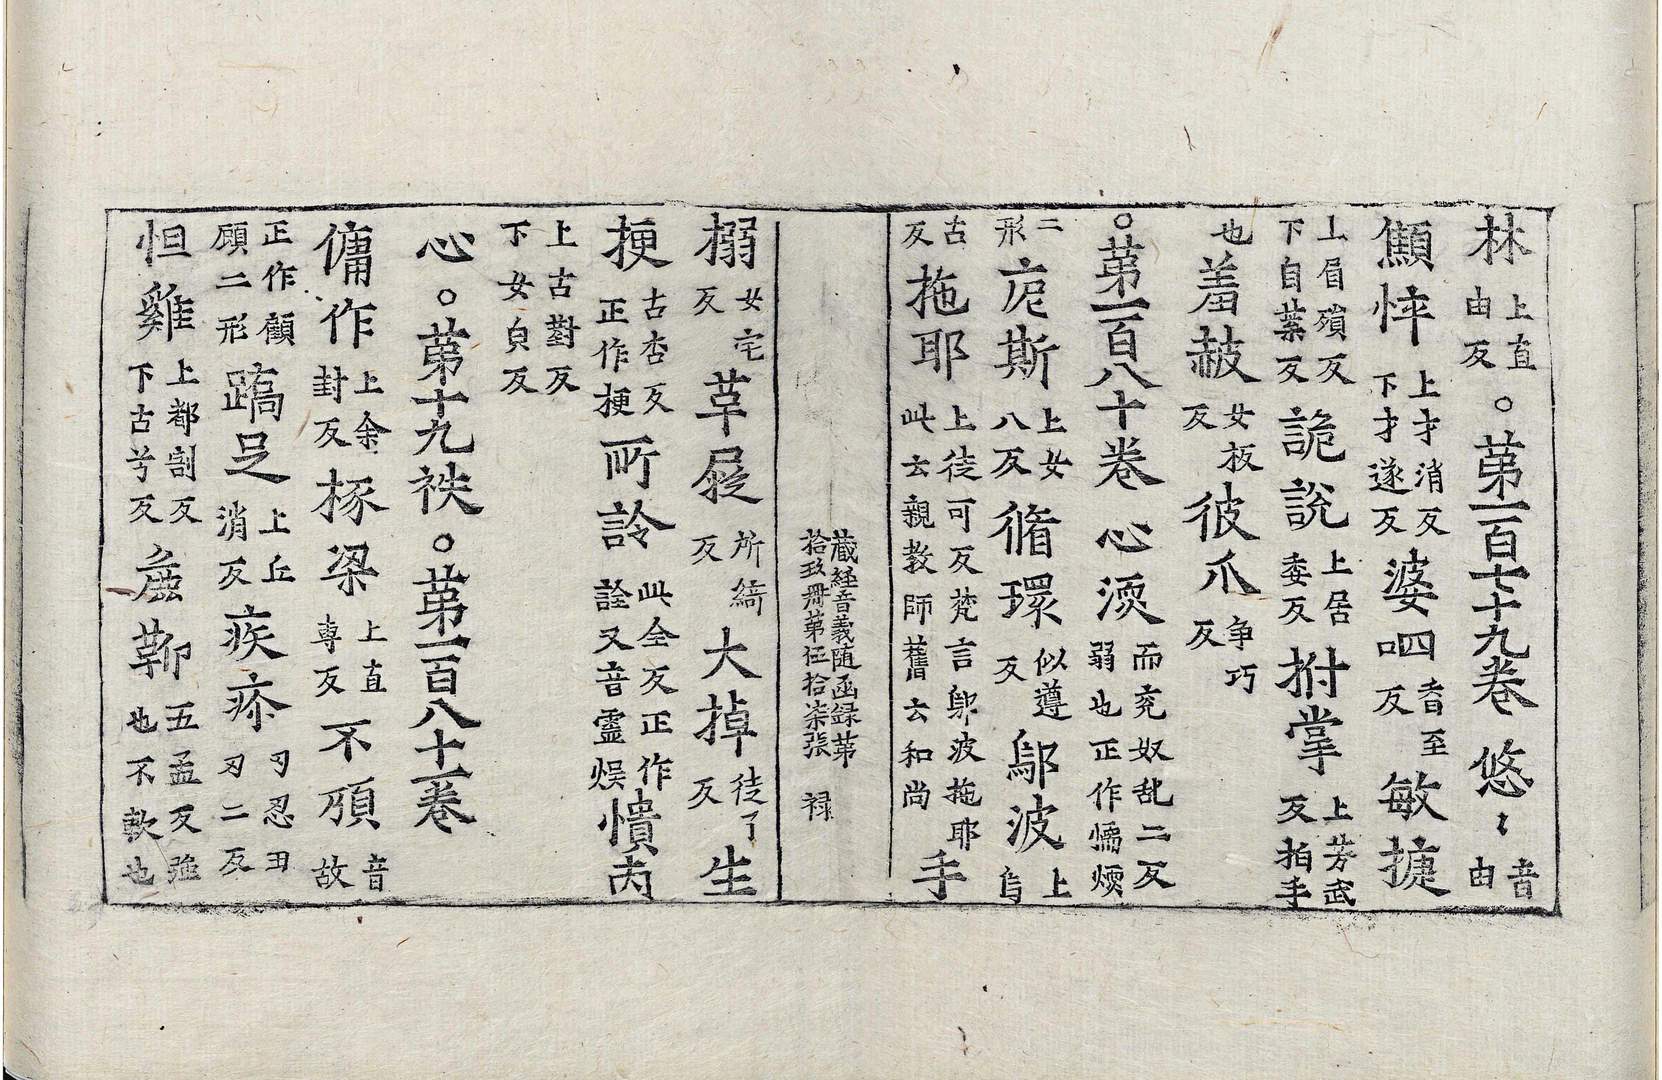 林上直由反。苐一百七十九卷悠〻音由
顦悴上才消反下才遂反婆呬香至反敏㨗
上眉殞反下自葉反詭說上居委反拊掌上芳武反拍手
也羞赧女板反彼爪争巧反
。苐一百八十卷心渜而兖奴乱二反弱也正作懦㬉
二形㡯斯上女八反脩環似遵反鄔波上烏
古反拖耶上徒可反梵言鄔波拖耶此云親教師舊云和尚手
藏経音義随函録苐拾玖冊苐伍拾柒張 禄
搦女宅反草屣所綺反大掉徒了反生
挭古杏反正作梗所詅此全反正作詮又音霊悮憒丙
上古對反下女皃反
心。苐十九袟。苐一百八十一卷
傭作上余封反椓梁上直専反不顾音故
正作顧頋二形蹻足上丘消反疾疹丑忍丑刃二反
怛雞上都割反下古兮反麁鞕五孟反強也不軟也